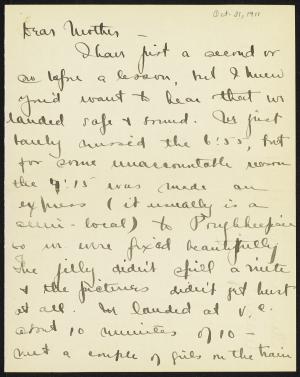 Oct. 31, 1911
Dear Mother -
I have just a second or
so before a lesson, but I knew
you'd want to hear that we
landed safe & sound. We just
barely missed the 6:55, but
for some unaccountable reason
the 7:15 was made an
express (it usually is a
semi-local) to Poughkeepsie
so we were fixed beautifully
The jelly didn't spill a mite
& the pictures didn't get hurt
at all. We landed at V.C.
about 10 minutes of 10 -
met a couple of girls on the train